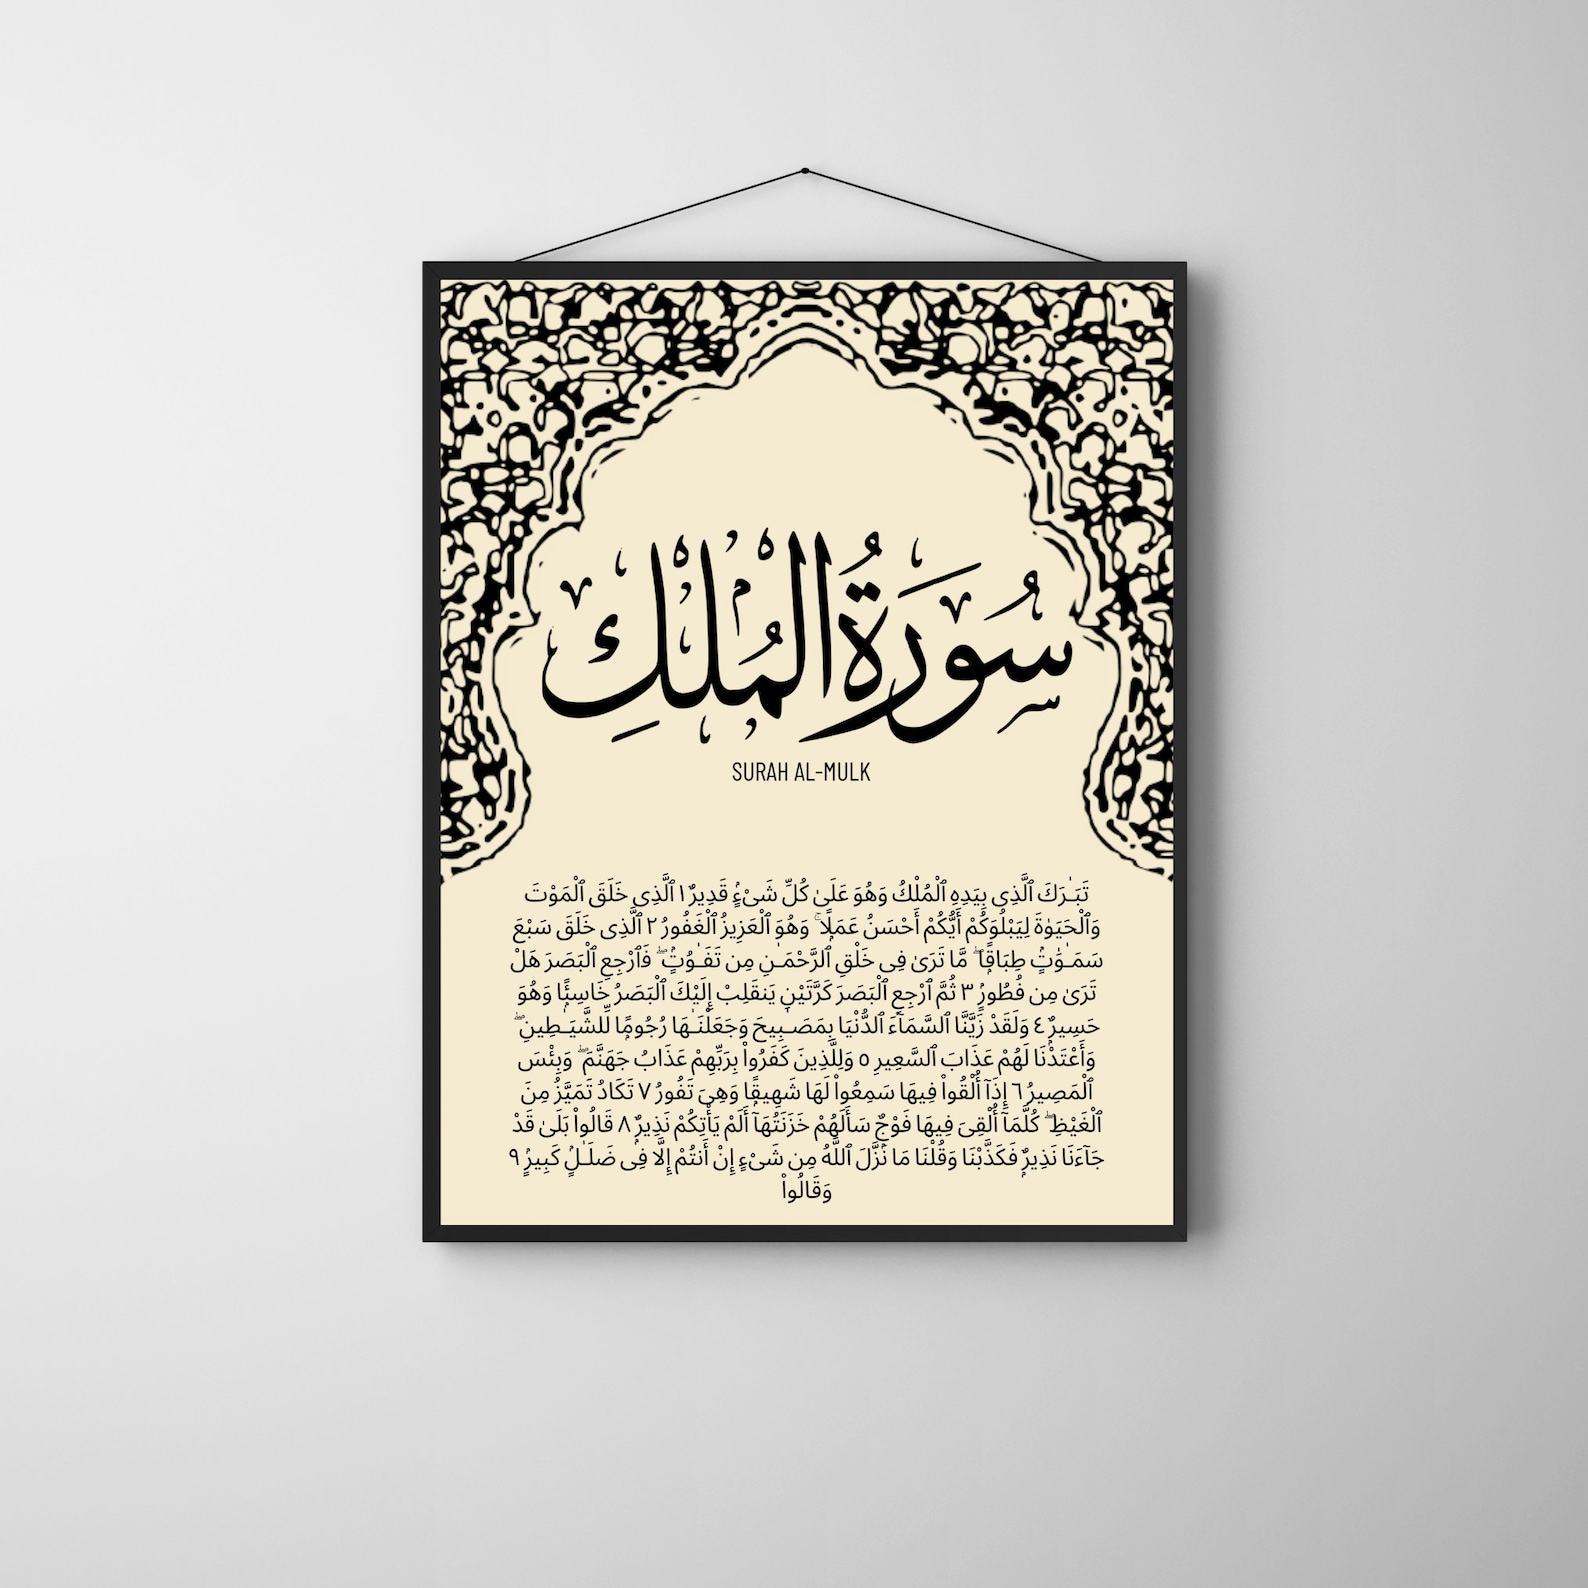 سُورَةُ الْمُلْكِ
SURAH AL-MULK
تَبَـٰرَكَ ٱلَّذِى بِيَدِهِ ٱلْمُلْكُ وَهُوَ عَلَىٰ كُلِّ شَىْءٍۢ قَدِيرٌ ١ ٱلَّذِى خَلَقَ ٱلْمَوْتَ
وَٱلْحَيَوٰةَ لِيَبْلُوَكُمْ أَيُّكُمْ أَحْسَنُ عَمَلًۭا ۚ وَهُوَ ٱلْعَزِيزُ ٱلْغَفُورُ ٢ ٱلَّذِى خَلَقَ سَبْعَ
سَمَـٰوَٰتٍۢ طِبَاقًۭا ۖ مَّا تَرَىٰ فِى خَلْقِ ٱلرَّحْمَـٰنِ مِن تَفَـٰوُتٍۢ ۖ فَٱرْجِعِ ٱلْبَصَرَ هَلْ
تَرَىٰ مِن فُطُورٍۢ ٣ ثُمَّ ٱرْجِعِ ٱلْبَصَرَ كَرَّتَيْنِ يَنقَلِبْ إِلَيْكَ ٱلْبَصَرُ خَاسِئًۭا وَهُوَ
حَسِيرٌۭ ٤ وَلَقَدْ زَيَّنَّا ٱلسَّمَآءَ ٱلدُّنْيَا بِمَصَـٰبِيحَ وَجَعَلْنَـٰهَا رُجُومًۭا لِّلشَّيَـٰطِينِ ۖ
وَأَعْتَدْنَا لَهُمْ عَذَابَ ٱلسَّعِيرِ ٥ وَلِلَّذِينَ كَفَرُوا۟ بِرَبِّهِمْ عَذَابُ جَهَنَّمَ ۖ وَبِئْسَ
ٱلْمَصِيرُ ٦ إِذَآ أُلْقُوا۟ فِيهَا سَمِعُوا۟ لَهَا شَهِيقًۭا وَهِىَ تَفُورُ ٧ تَكَادُ تَمَيَّزُ مِنَ
ٱلْغَيْظِ ۖ كُلَّمَآ أُلْقِىَ فِيهَا فَوْجٌۭ سَأَلَهُمْ خَزَنَتُهَآ أَلَمْ يَأْتِكُمْ نَذِيرٌۭ ٨ قَالُوا۟ بَلَىٰ قَدْ
جَآءَنَا نَذِيرٌۭ فَكَذَّبْنَا وَقُلْنَا مَا نَزَّلَ ٱللَّهُ مِن شَىْءٍ إِنْ أَنتُمْ إِلَّا فِى ضَلَـٰلٍۢ كَبِيرٍۢ ٩
وَقَالُوا۟